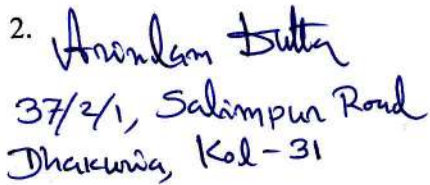 2. Arindam Dutta
37/2/1, Salimpur Road
Dhakuria, Kol-31